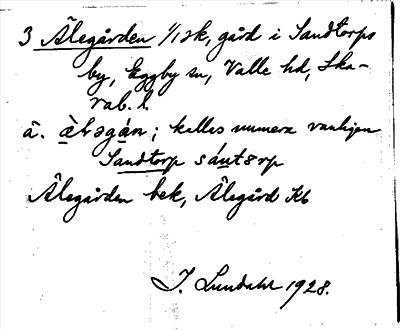 3 Ålegården 1/12 k, gård i Sandtorps
by, Eggby sn, Valle hd, Ska-
rab. l.
å. kallas numera vanligen
Sandtorp
Ålegården bek, Ålegård Kb
I. Lundahl 1928.